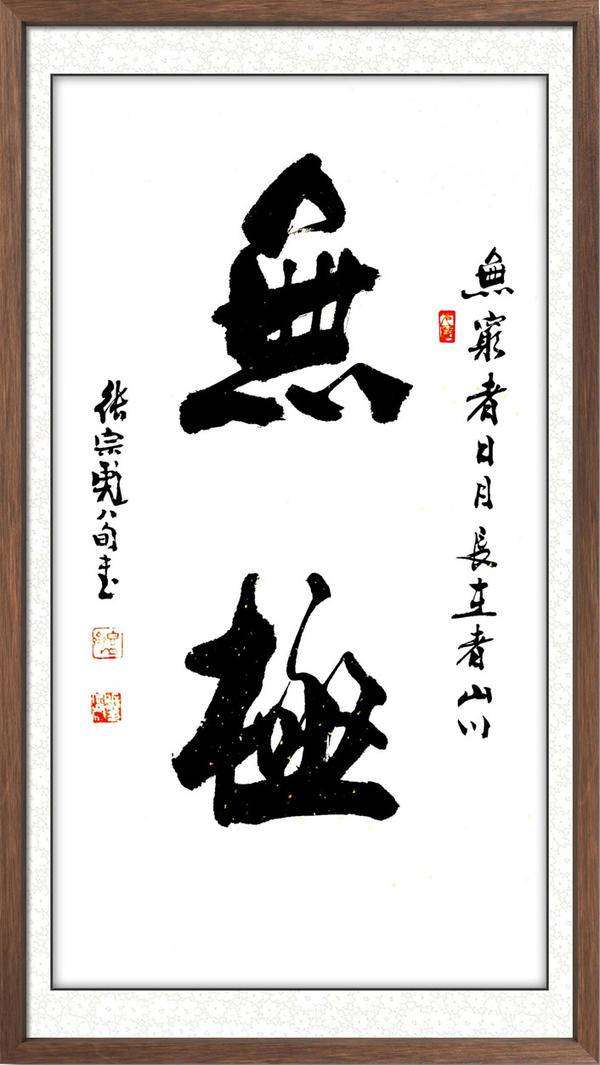 無窮者日月長在者山川
無極
張宗八旬書